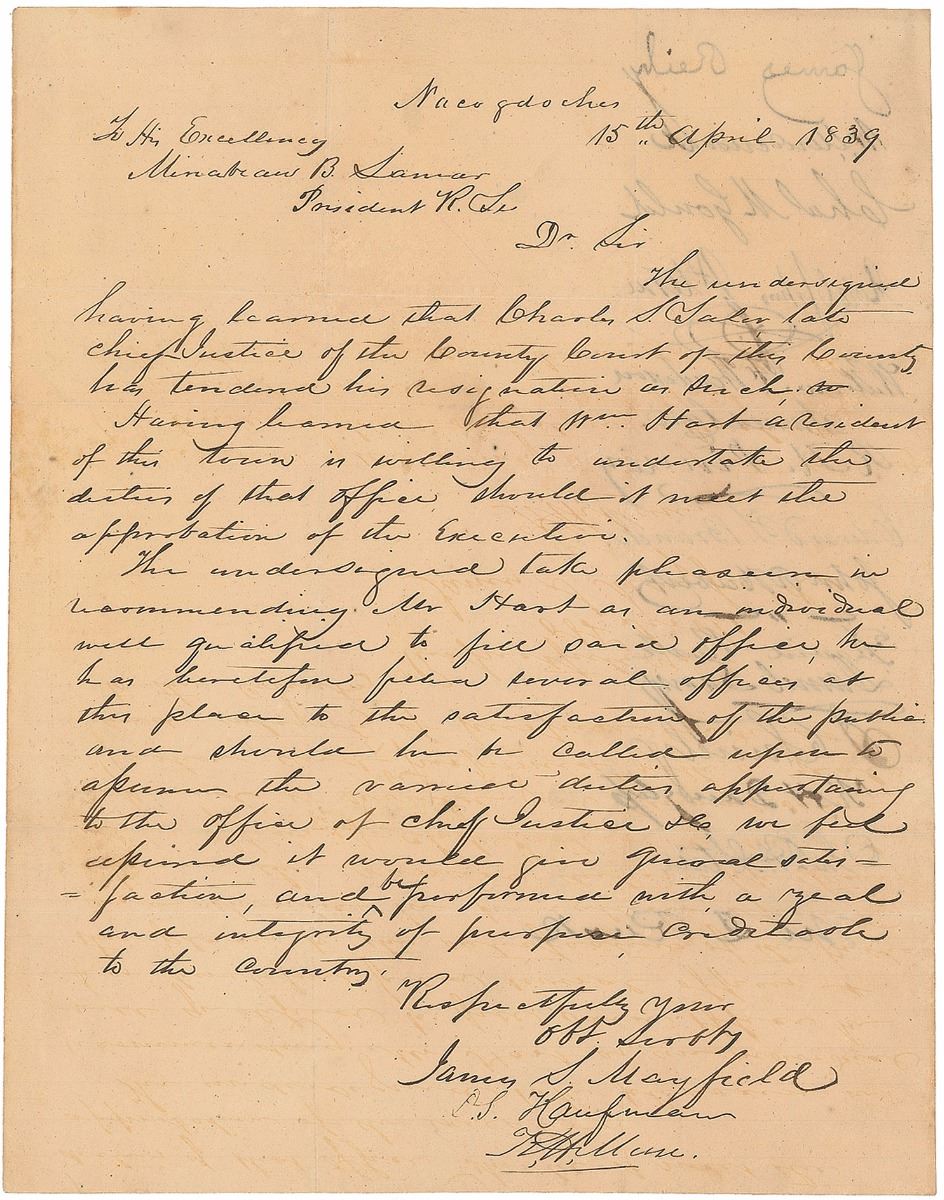 Nacogdoches
15th April 1839
To His Excellency
Mirabeau B. Lamar
President R. Te
Dr. Sir
The undersigned
having learned that Charles S. Taler late
chief Justice of the County Court of this County
has tendered his resignation as such,
Having learned that Wm. Hart a resident
of this town is willing to undertake the
duties of that office should it meet the
approbation of the Executive.
The undersigned take pleasure in
recommending Mr Hart as an individual
well qualified to fill said office, he
has heretofore filled several offices at
this place to the satisfaction of the public
and should he be called upon to
assume the varried duties appertaing
to the office of chief Justice &c, we feel
assured it would give general satis=
=faction, and be performed with a zeal
and integrity of purpose, creditable
to the country.
Respectfully your
obt. Servts
James S. Mayfield
D.S. Kaufman